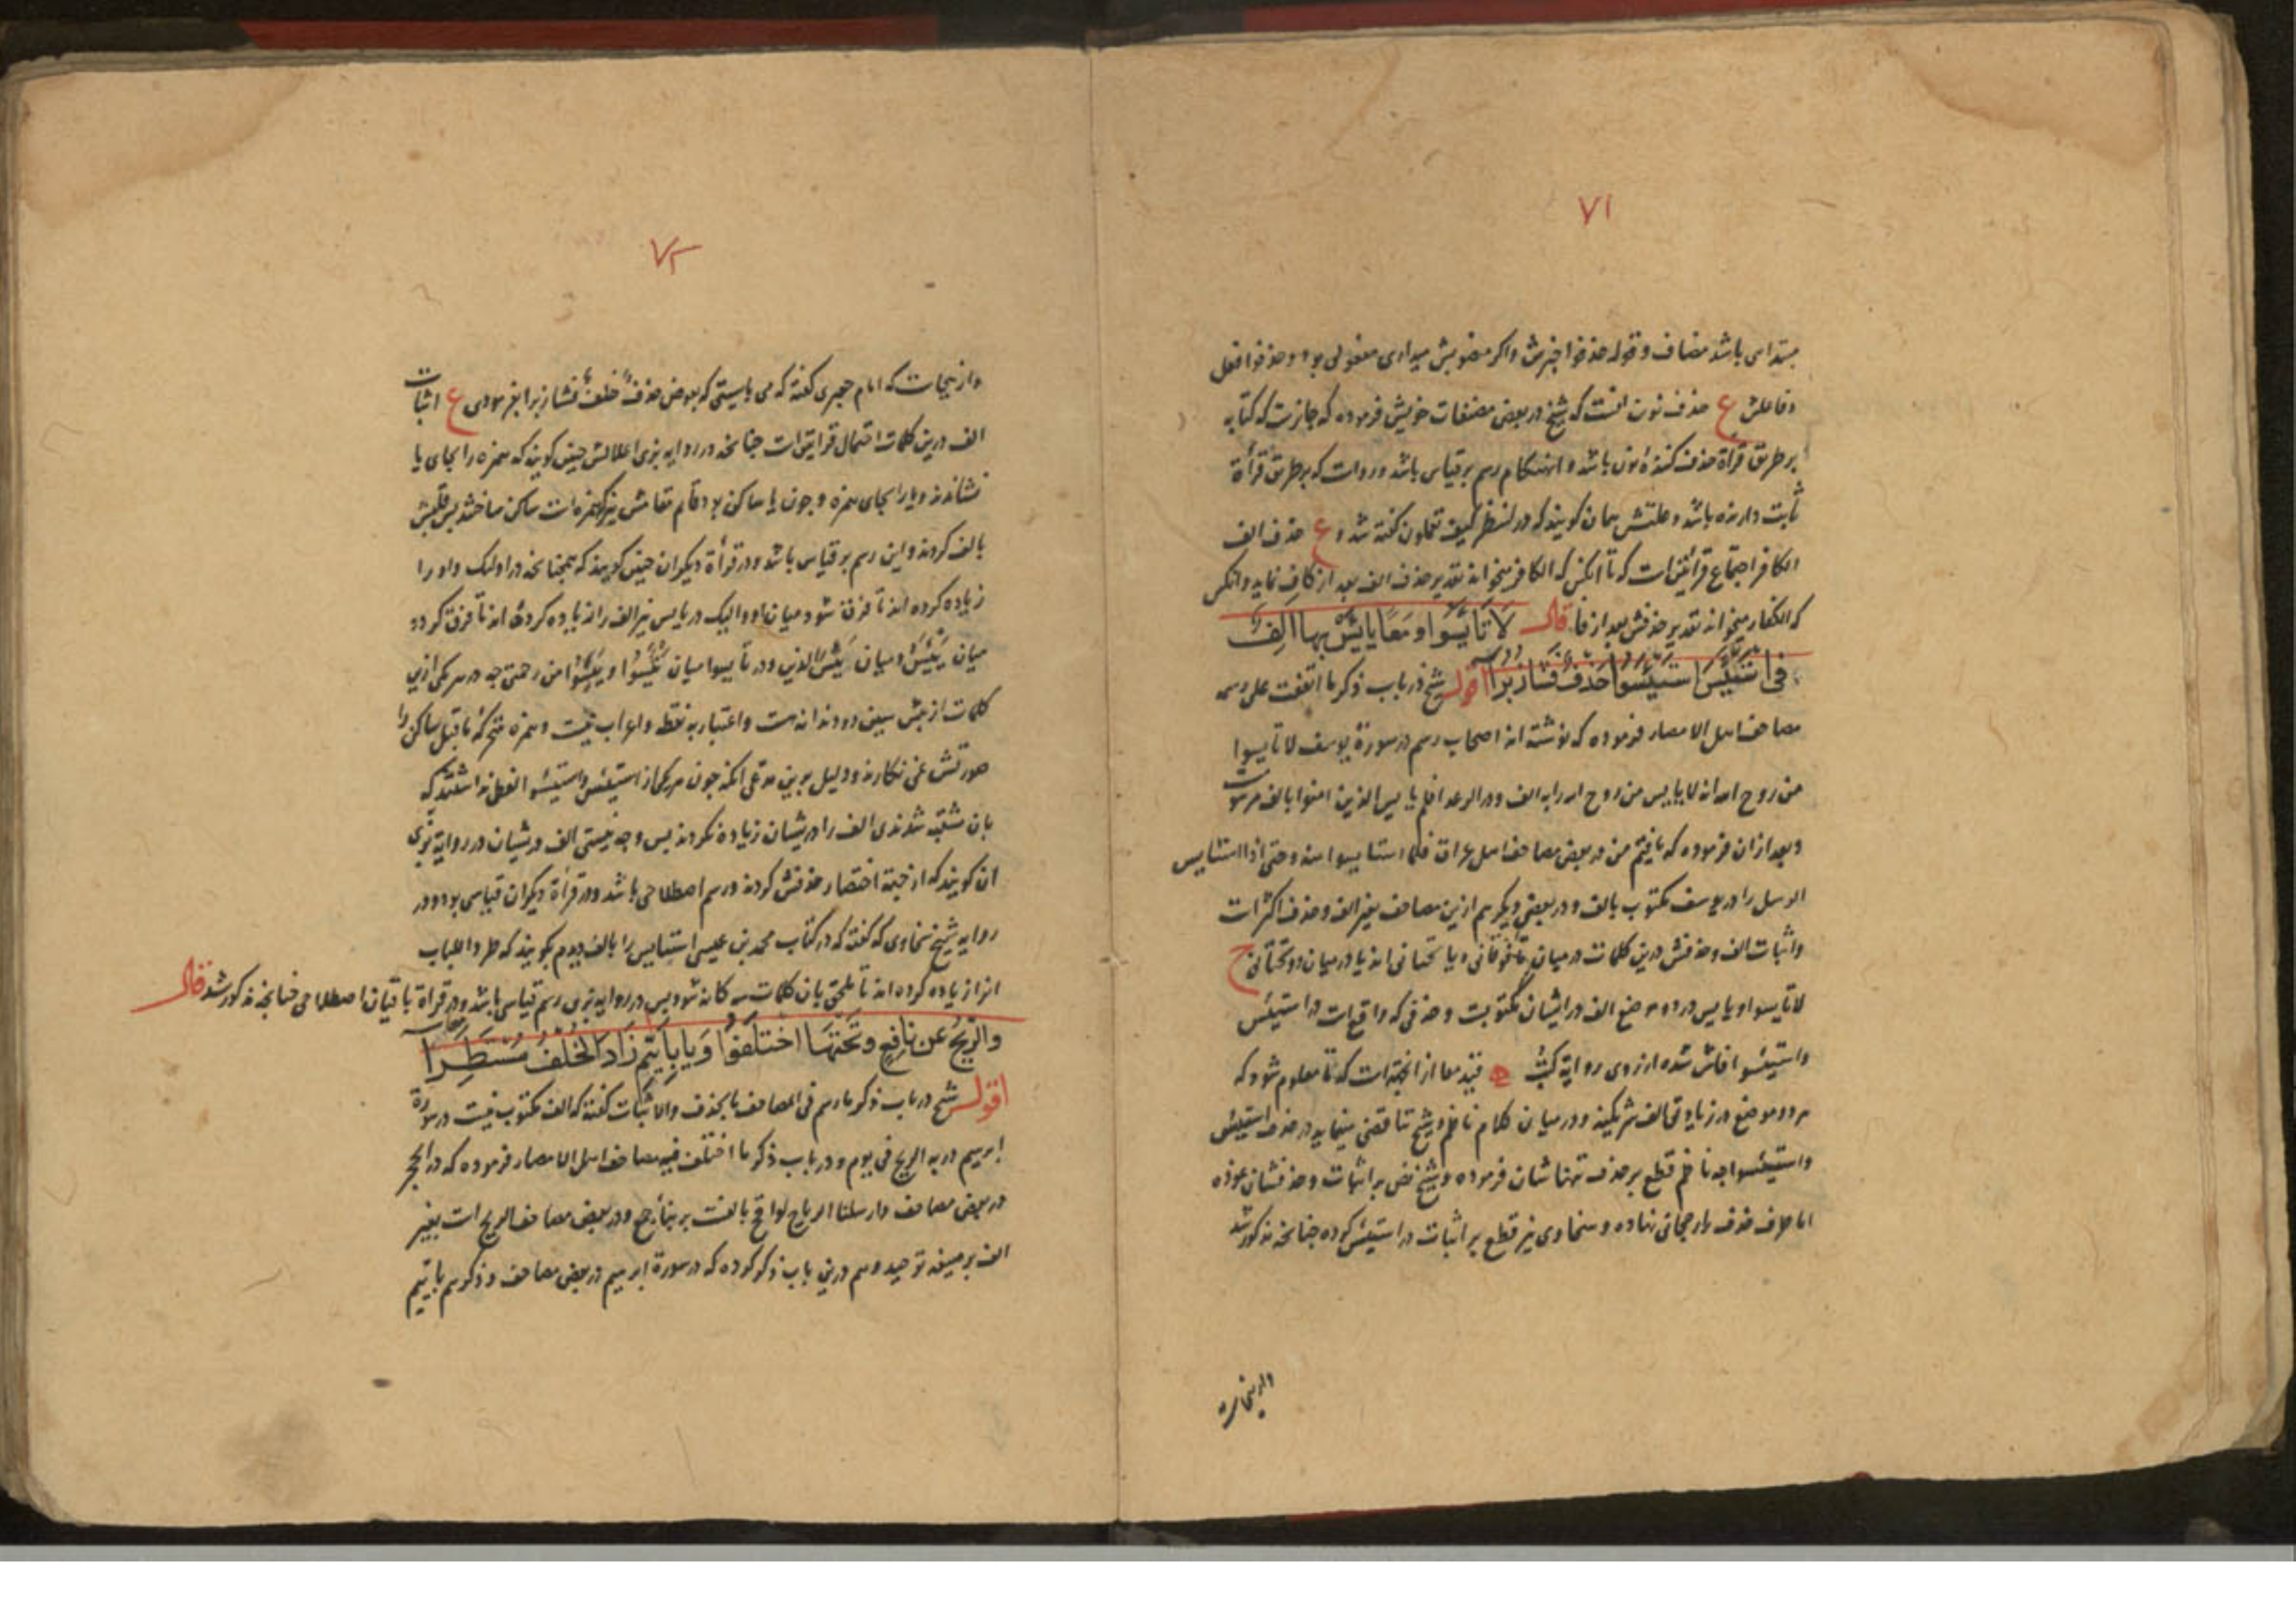 ٧١
مبتدایی باشد مضاف و قوله حذفوا خبرش و اکر منصوبش میداری مفعولی بود و حذفوا فعل
و فاعلش ع حذف نون انست که شیخ در بعضی مصنفات خویش فرموده که جایزست که کتابه
بر طریق قرأة حذف کننده نون باشد و اینهنکام رسم بر قیاس باشد و رواست که بر طریق قرأة
ثابت دارنده باشد و علتش همان کویند که در لننظر کیف تعملون کفته شد و ع حذف الف
الکافر اجتماع قرائتین است که تا انکس که الکافر میخواند تقدیر حذف الف بعد از کاف نماید و انکس
که الکفار میخواند تقدیر حذفش بعد از فا قال لا تایسوا و معا یایس بها الف
فی استیئس استیئسوا حذف فشا زبرا اقول شیخ در باب ذکر ما اتفقت علی رسمه
مصاحف اهل الامصار فرموده که نوشته اند اصحاب رسم در سورة یوسف لا تایسوا
من روح الله انه لا یایس من روح الله را به الف و در الرعد افلم یایس الذین امنوا بالف مرسومست
و بعد از ان فرموده که یافتم من در بعض مصاحف اهل عراق فلما استایسوا منه و حتی اذا استایس
الرسل را در یوسف مکتوب بالف و در بعضی دیکر هم ازین مصاحف بغیر الف و حذف اکثرست
و اثبات الف و حذفش درین کلمات در میان تا فوقانی و یا تحتانی اند یا در میان دو تحتانی ح
لا تایسوا و یایس در دو موضع الف در ایشان مکتوبست و حذفی که واقع است در استیئس
و استیئسوا فاش شده از روی روایة کتب ه قید معا از انجهة است که تا معلوم شود که
هر دو موضع در زیادتی الف شریکند و در میان کلام ناظم و شیخ تناقضی مینماید در حذف استیئس
و استیئسوا چه ناظم قطع بر حذف تنها شان فرموده و شیخ نص بر اثبات و حذفشان نموده
اما طرف حذف را رجحانی نهاده و سخاوی نیز قطع بر اثبات در استیئس کرده چنانچه مذکور شد
٧٢
و ازینجاست که امام جعبری کفته که می بایستی که بعوض حذفٌ خلفٌ فشا زبرا بفرمودی ع اثبات
الف درین کلمات احتمال قراءتین است چنانچه در روایه بزی اعلالش چنین کویند که همزه را بجای یا
نشاندند و یا را بجای همزه و چون یا ساکن بود قایم مقامش نیز که همزه است ساکن ساختند پس قلبش
بالف کردند و این رسم بر قیاس باشد و در قرأة دیکران چنین کویند که همچنانچه در اولئک واو را
زیاده کرده اند تا فرق شود میان او و الیک در یایس نیز الف را زیاده کرده اند تا فرق کردد
میان یئس و میان یئس الذین و در تایسوا میان یئسوا و یئسوا من رحمتی چه در هر یکی ازین
کلمات از پیش سین دو دندانه است و اعتبار به نقط و اعراب نیست و همزه متحرکه ماقبل ساکن را
صورتش نمی نکارند و دلیل برین مدعی انکه چون هر یکی از استیئس و استیئسوا لفظی نداشتند که
بان مشتبه شدندی الف را در یشان زیاده نکردند پس وجه نیستی الف در یشان در روایة بزی
ان کویند که از جهة اختصار حذفش کردند و رسم اصطلاحی باشد و در قرأة دیکران قیاسی بود و در
روایه شیخ سخاوی که کفته که در کتاب محمد بن عیسی استایس را بالف دیدم بکویند که طردا للباب
انرا زیاده کرده اند تا ملحق بان کلمات سه کانه شود پس در روایه بزی رسم قیاسی باشد و در قرأة باقیان اصطلاحی چنانچه مذکور شد قال
و الریح عن نافع و تحتها اختلفوا و یا بایتم زاد الخلف مستطرا
اقول شیخ در باب ذکر ما رسم فی المصاحف بالحذف و الاثبات کفته که الف مکتوب نیست در سورة
ابرهیم در به الریح فی یوم و در باب ذکر ما اختلف فیه مصاحف اهل الامصار فرموده که در الحجر
در بعض مصاحف و ارسلنا الریاح لواقح بالفست بر بناء جمع و در بعض مصاحف الریح است بغیر
الف بر صیغه توحید و هم درین باب ذکر کرده که در سورة ابرهیم در بعض مصاحف و ذکرهم باییم